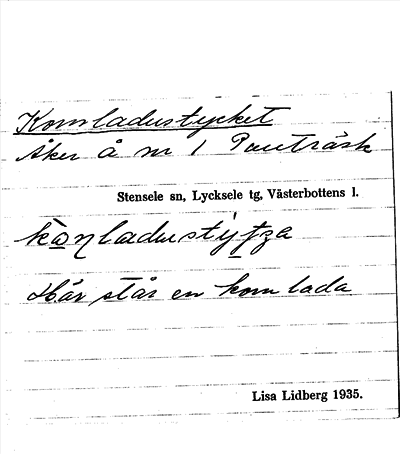 Kornladustycket
Åker å nr 1 Pauträsk
Stensele sn, Lycksele tg, Västerbottens l.
Här står en korn lada
Lisa Lidberg 1935.